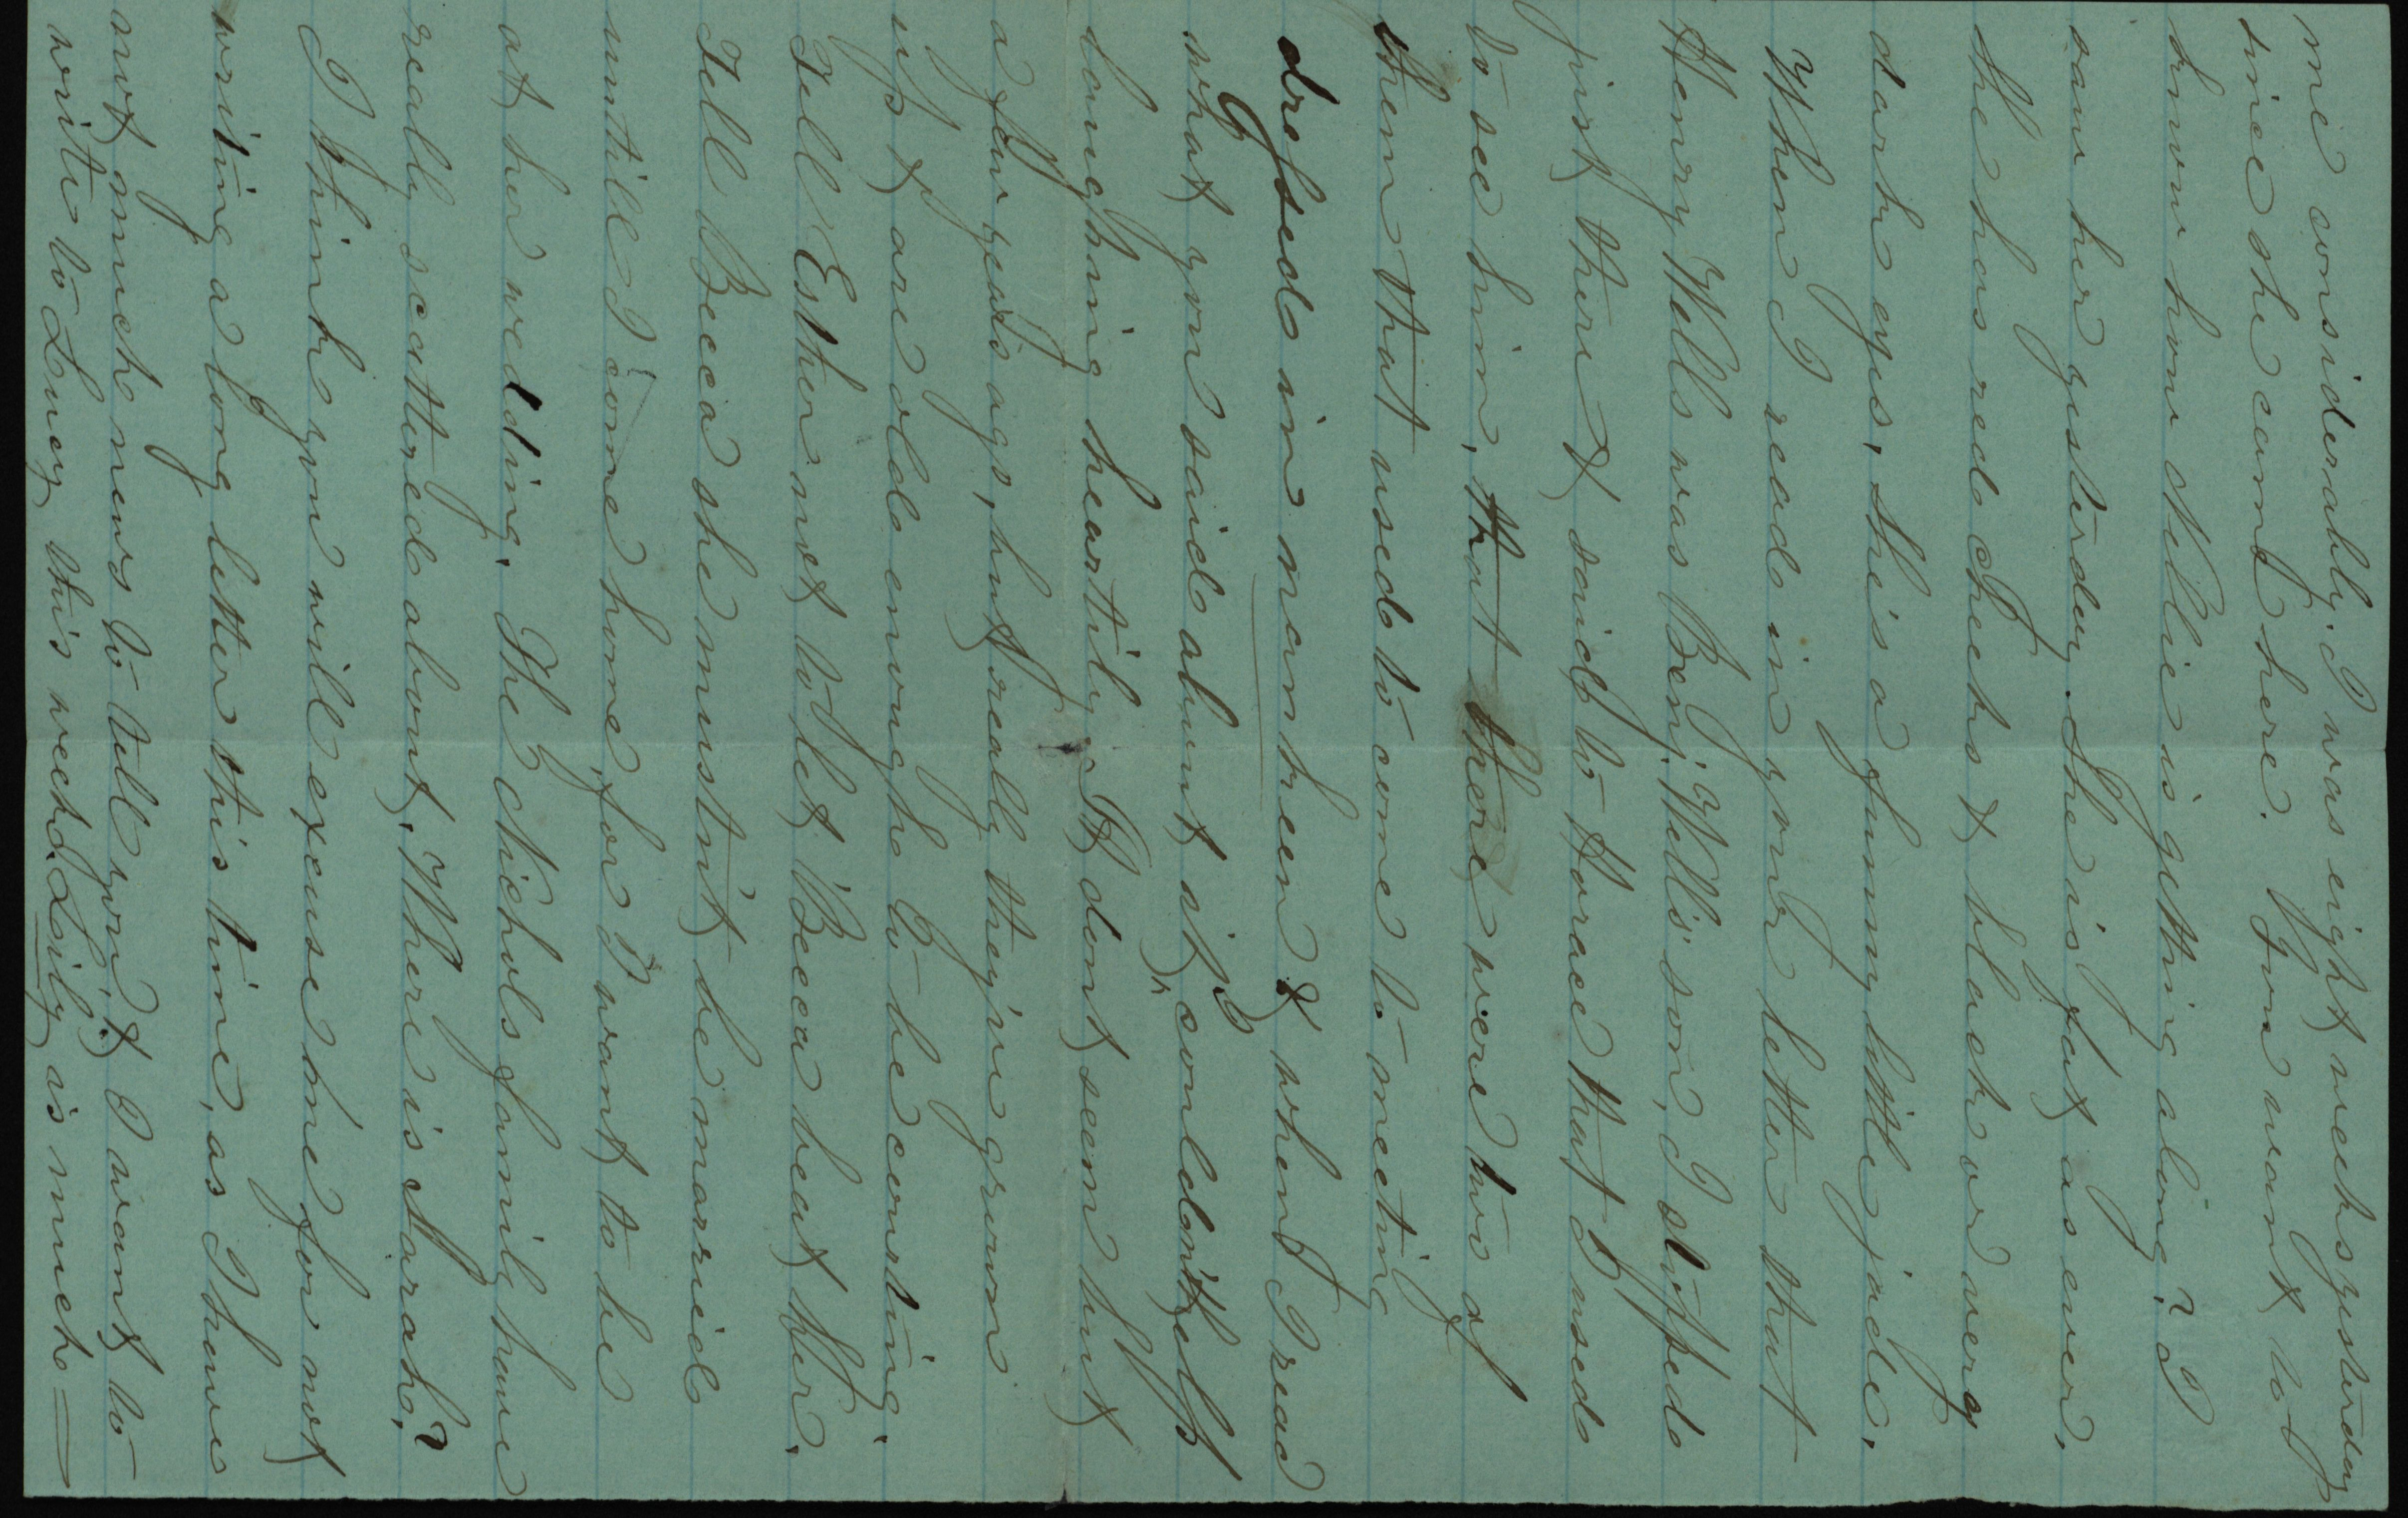 me considerably. I was eight weeks yesterday
since she came here. You want to
know how Nellie is getting along? I
saw her yesterday. She is fat as ever,
she has red cheeks & black or very
dark eyes, she's a funny little jade.
When I read in your letter that
Henry Wells was Benj. Wells' son, I stopped
just there & said to Horace that I used
to see him, that there were two of
them that used to come to meeting
dressed in nankeen & when I read
what you said about it, I couldn't help
laughing heartily. It dont seem but
a few years ago, but really they're grown
up & are old enough to be courting.
Tell Esther not to let Becca beat her.
Tell Becca she mustn't be married
untill I come home, for I want to be
at her wedding. The Nichols family have
really scattered about. Where is Sarah?
I think you will excuse me for not
writing a long letter this time, as I have
not much news to tell you, & I want to
write to Lucy this week. Lily is much =